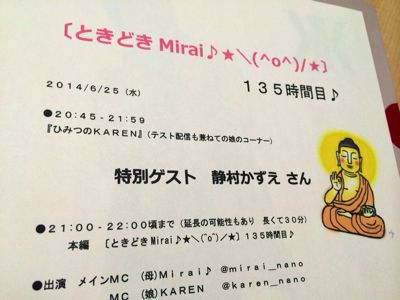 〔ときどきMirai♪★＼(^o^)/★〕
2014/6/25（水）
１３５時間目♪
●20:45-21:59
『ひみつのKAREN』（テスト配信も兼ねての娘のコーナー）
特別ゲスト　静村かずえ さん
●21:00-22:00頃まで（延長の可能性もあり　長くて30分）
本編　〔ときどきMirai♪★＼(^o^)/★〕135時間目♪
●出演　メインMC　（母）Mirai♪　@mirai_nano
MC　（娘）KAREN　@karen_nano